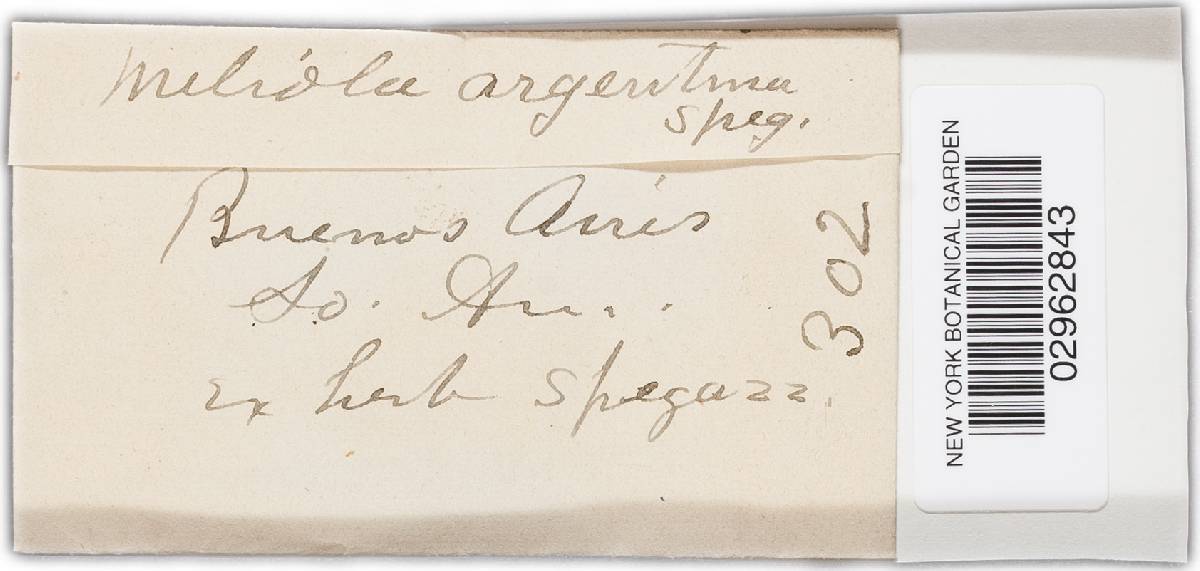 Meliola argentina
Speg.
Buenos Aires
So. Am.
ex herb Spegazz.
302
NEW YORK BOTANICAL GARDEN
02962843